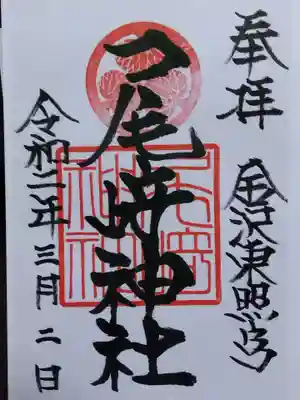 奉拝
金沢東照宮
尾崎神社
令和二年三月二日
尾崎
神社